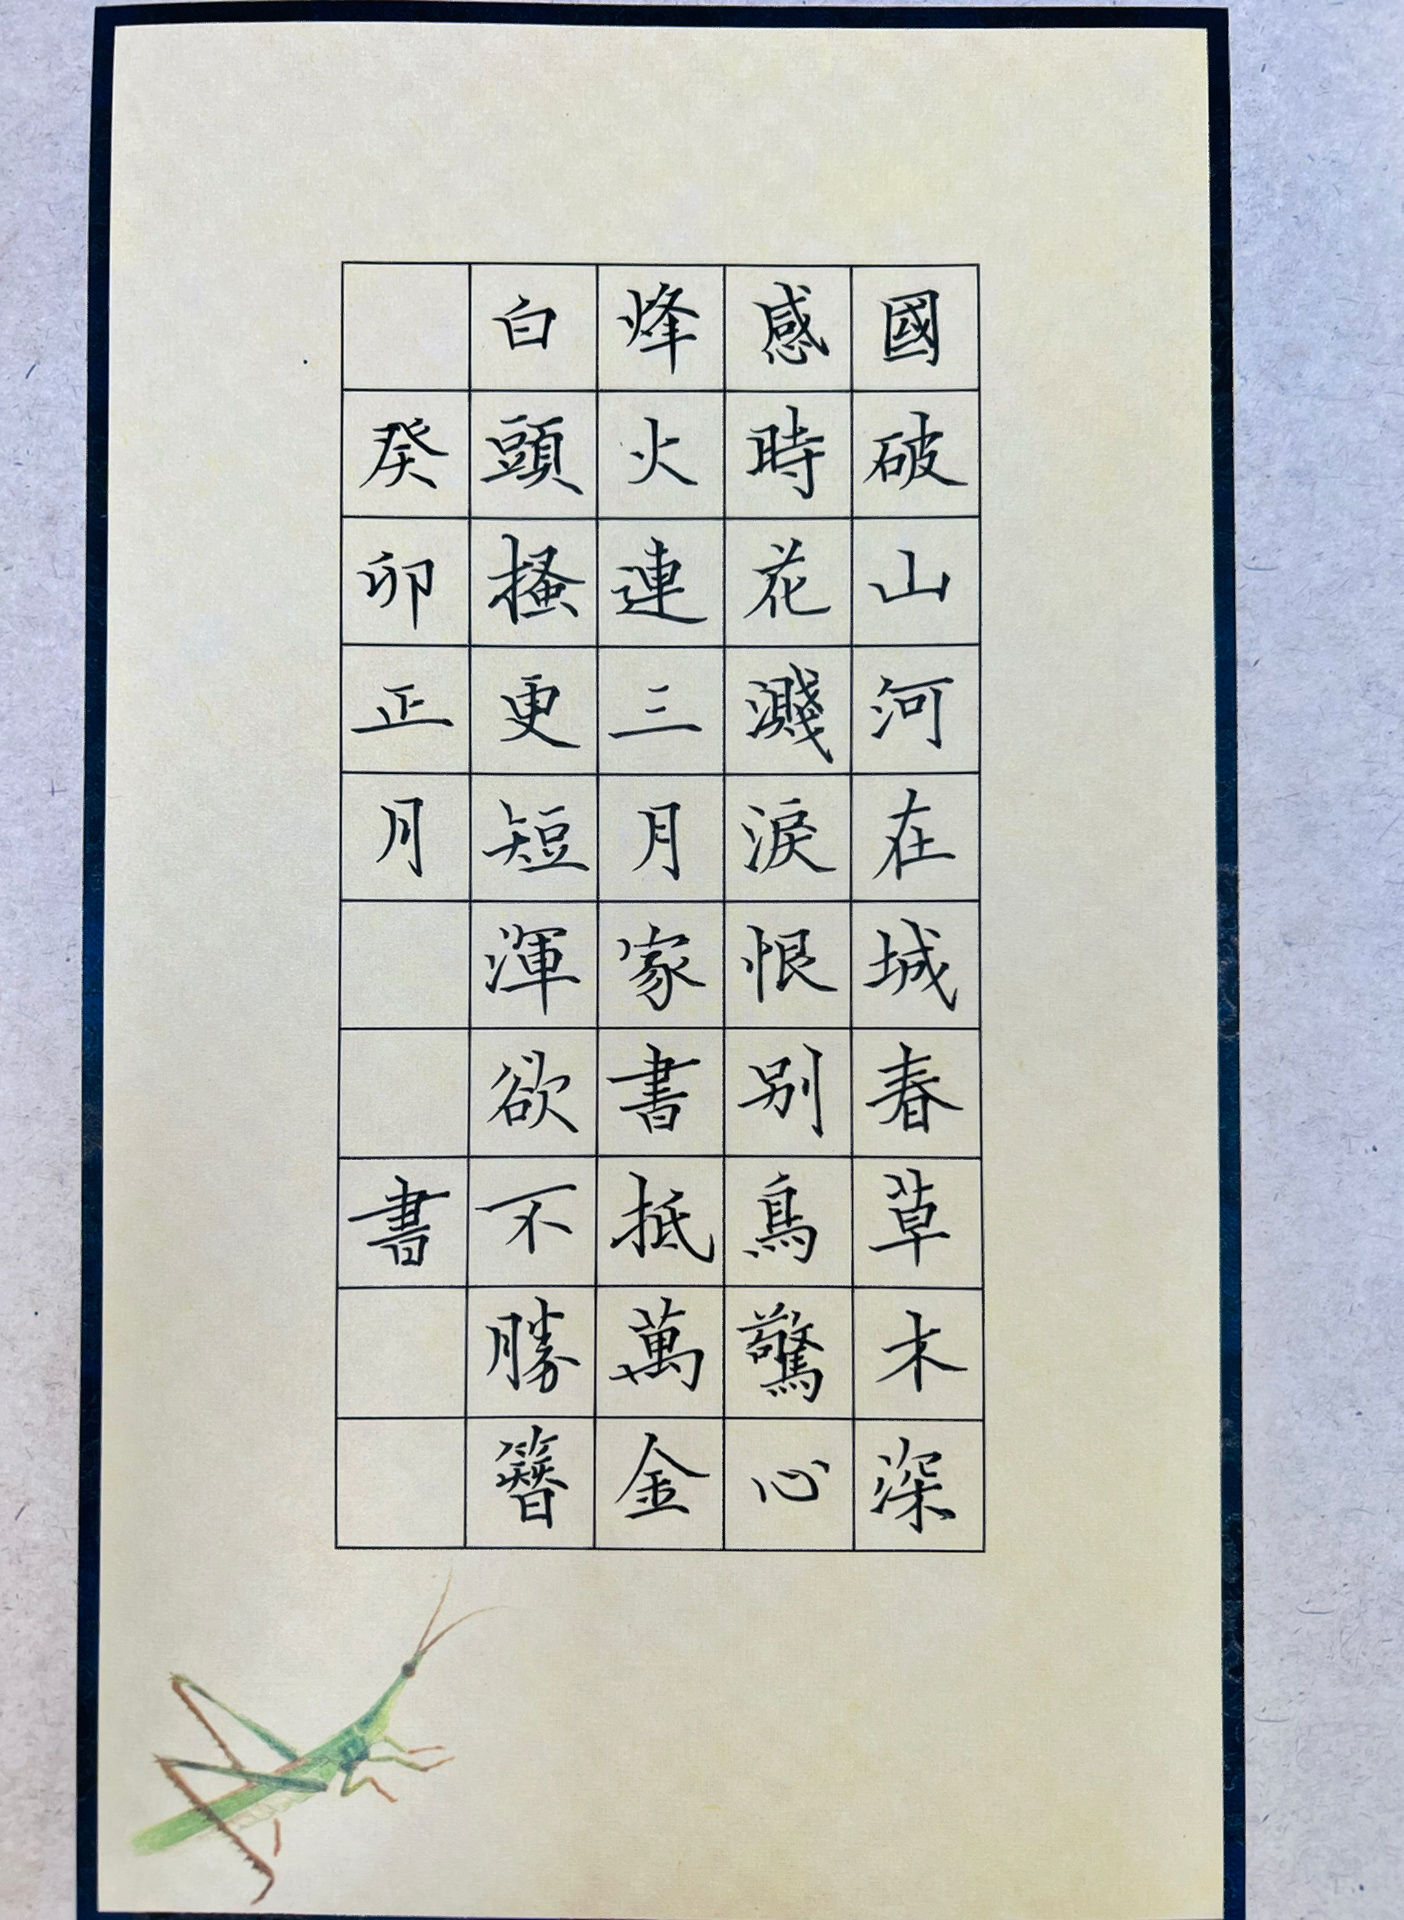 國破山河在城春草木深
感時花濺淚恨別鳥驚心
烽火連三月家書抵萬金
白頭搔更短渾欲不勝簪
癸卯正月書